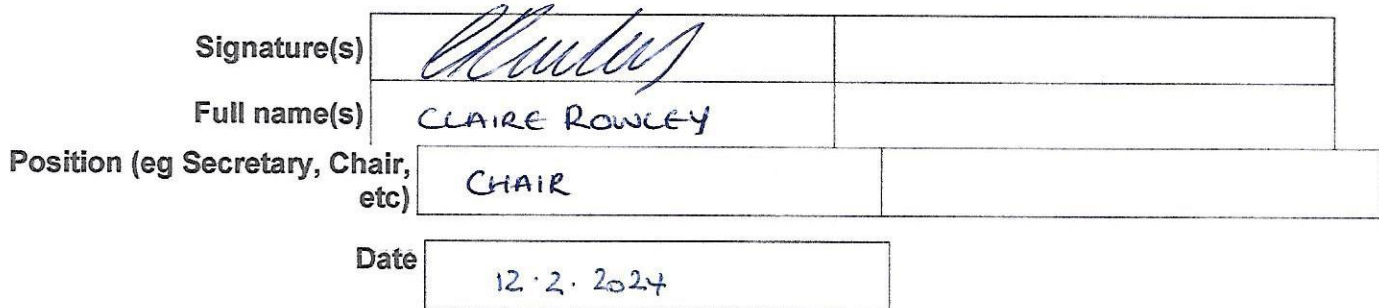 Signature(s)
Full name(s) CLAIRE ROWLEY
Position (eg Secretary, Chair,
etc) CHAIR
Date 12.2.2024